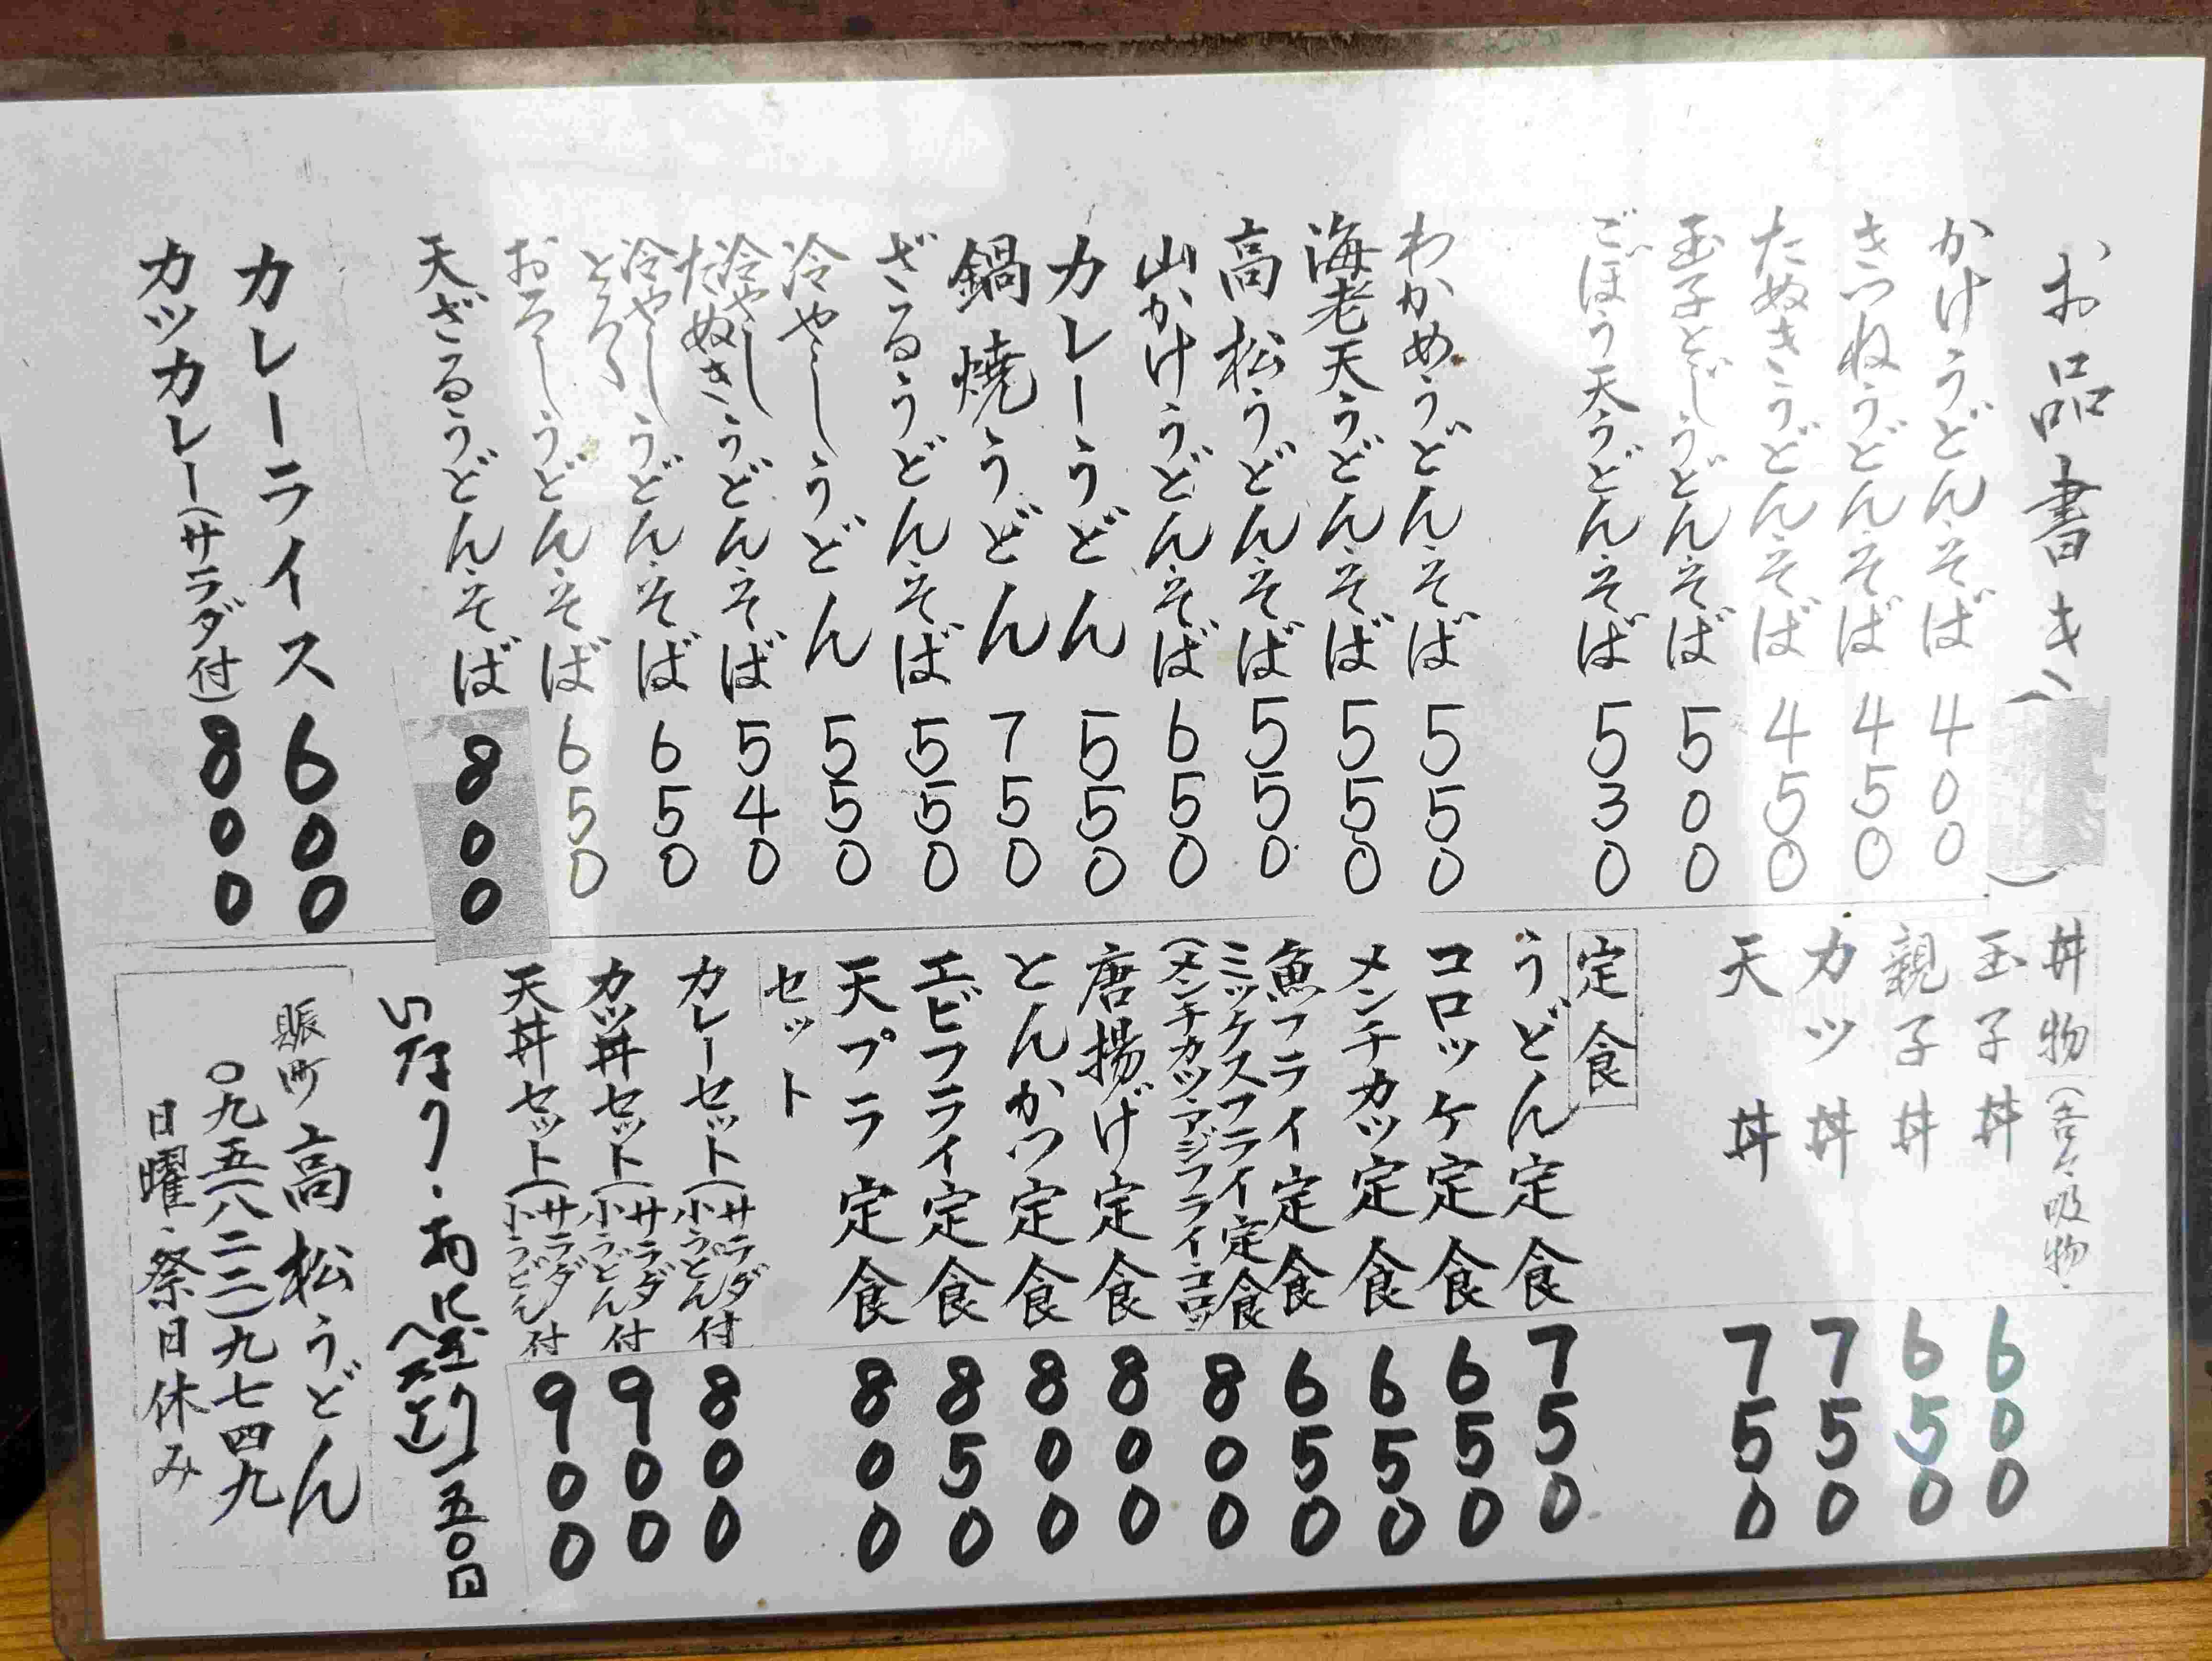 お品書き（ ）
かけうどん・そば 400
きつねうどん・そば 450
たぬきうどん・そば 450
玉子とじうどん・そば 500
ごぼう天うどん・そば 530
わかめうどん・そば 550
海老天うどん・そば 550
高松うどん・そば 550
山かけうどん・そば 650
カレーうどん 550
鍋焼うどん 750
ざるうどん・そば 550
冷やしうどん 550
冷やしたぬきうどん・そば 540
冷やしとろろうどん・そば 650
おろしうどん・そば 650
天ざるうどん・そば 800
カレーライス 600
カツカレー（サラダ付） 800
丼物（吸物）
玉子丼 600
親子丼 650
カツ丼 750
天丼 750
定食
うどん定食 750
コロッケ定食 650
メンチカツ定食 650
魚フライ定食 650
ミックスフライ定食 800
（メンチカツ・アジフライ・コロッケ
唐揚げ定食 800
とんかつ定食 800
エビフライ定食 850
天プラ定食 800
セット
カレーセット（サラダ 小うどん付 800
カツ丼セット（サラダ 小うどん付 900
天丼セット（サラダ 小うどん付 900
いなり・おにぎり 一五〇円
賑町 高松うどん
〇九五（八二二）九七四九
日曜・祭日休み